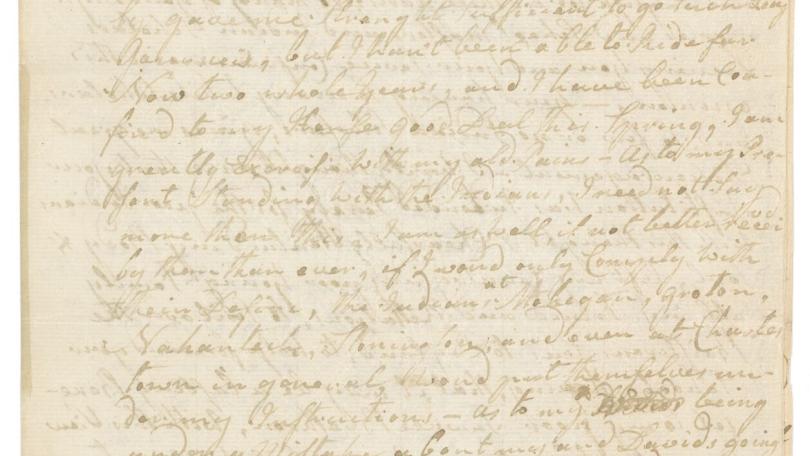 gave me Strenght Sufficient to go such Long
Jorneies, but I han't been able to Ride far
Now two whole Years, and I have been Con-
find to my House good Deal this Spring, I am
greatly Exercis'd with my old Pains – As to my Pre-
sent Standing with the Indians, I need not Say
more than this, I am as well if not better Receivd
by them than ever, if I woud only Comply with
their Desire, the Indians at Mohegan, groton,
Nahantick, Stonington, and even at Charles
town in general, woud put themselves un-
der my Instructions – as to my being
under a Mistake about me and Davids going